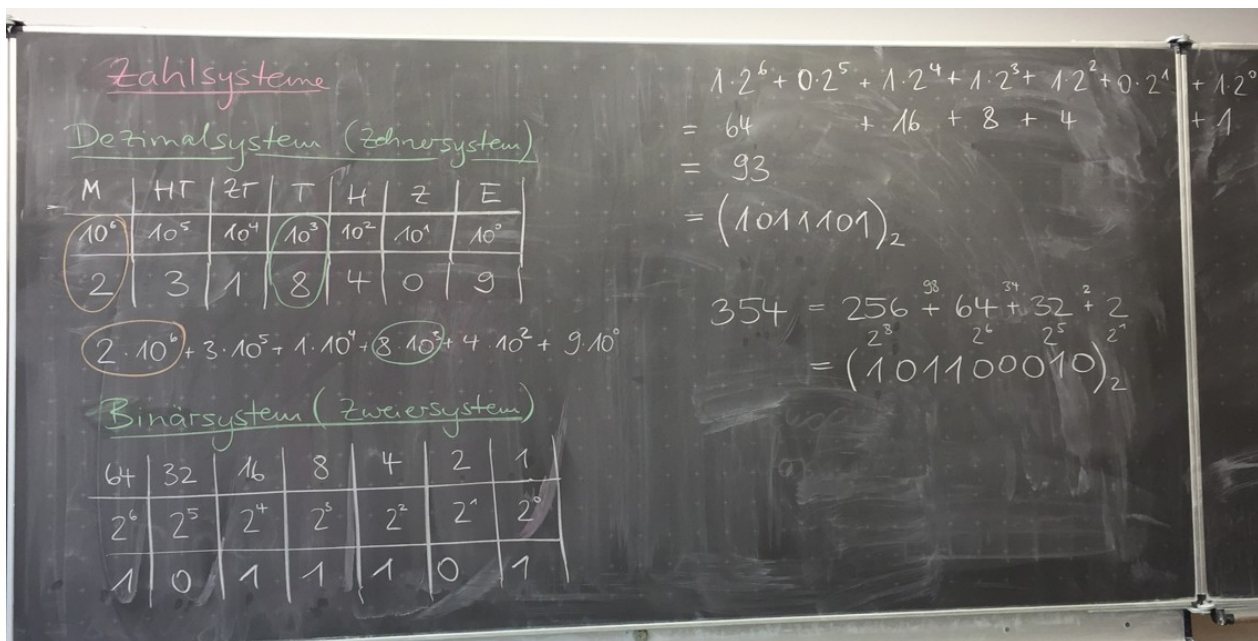 Zahlsysteme
Dezimalsystem (Zehnersystem)
M HT ZT T H Z E
10⁶ 10⁵ 10⁴ 10³ 10² 10¹ 10⁰
2 3 1 8 4 0 9
2·10⁶ + 3·10⁵ + 1·10⁴ + 8·10³ + 4·10² + 9·10⁰
Binärsystem (Zweiersystem)
64 32 16 8 4 2 1
2⁶ 2⁵ 2⁴ 2³ 2² 2¹ 2⁰
1 0 1 1 1 0 1
1·2⁶ + 0·2⁵ + 1·2⁴ + 1·2³ + 1·2² + 0·2¹ + 1·2⁰
= 64 + 16 + 8 + 4 + 1
= 93
= (1011101)₂
98 34 2
354 = 256 + 64 + 32 + 2
2⁸ 2⁶ 2⁵ 2¹
= (101100010)₂